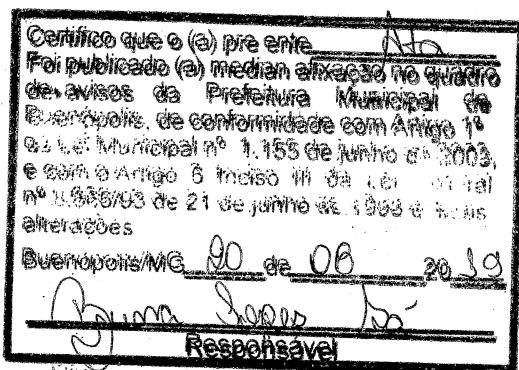 Certifico que o (a) presente Ata
Foi publicado (a) mediante afixação no quadro
de avisos da Prefeitura Municipal de
Buenópolis, de conformidade com Artigo 1º
da Lei Municipal nº 1.155 de junho de 2003,
e com o Artigo 6 Inciso III da Lei
nº 8.666/93 de 21 de junho de 1993 e
alterações
Buenópolis/MG 20 de 08 2019
Bruna
Responsável